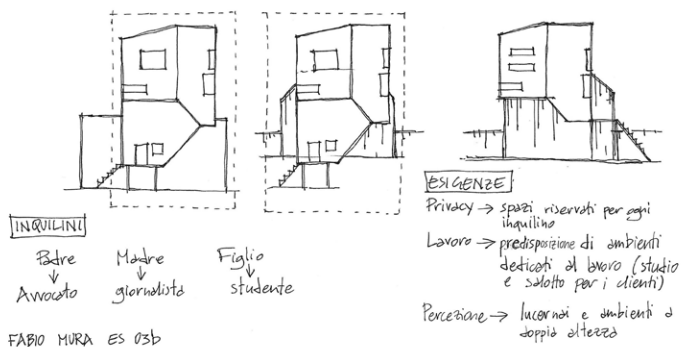 INQUILINI
Padre Madre Figlio
Avvocato giornalista studente
FABIO MURA ES 03b
ESIGENZE
Privacy → spazi riservati per ogni
inquilino
Lavoro → predisposizione di ambienti
dedicati al lavoro (studio
e salotto per i clienti)
Percezione → lucernai e ambienti a
doppia altezza